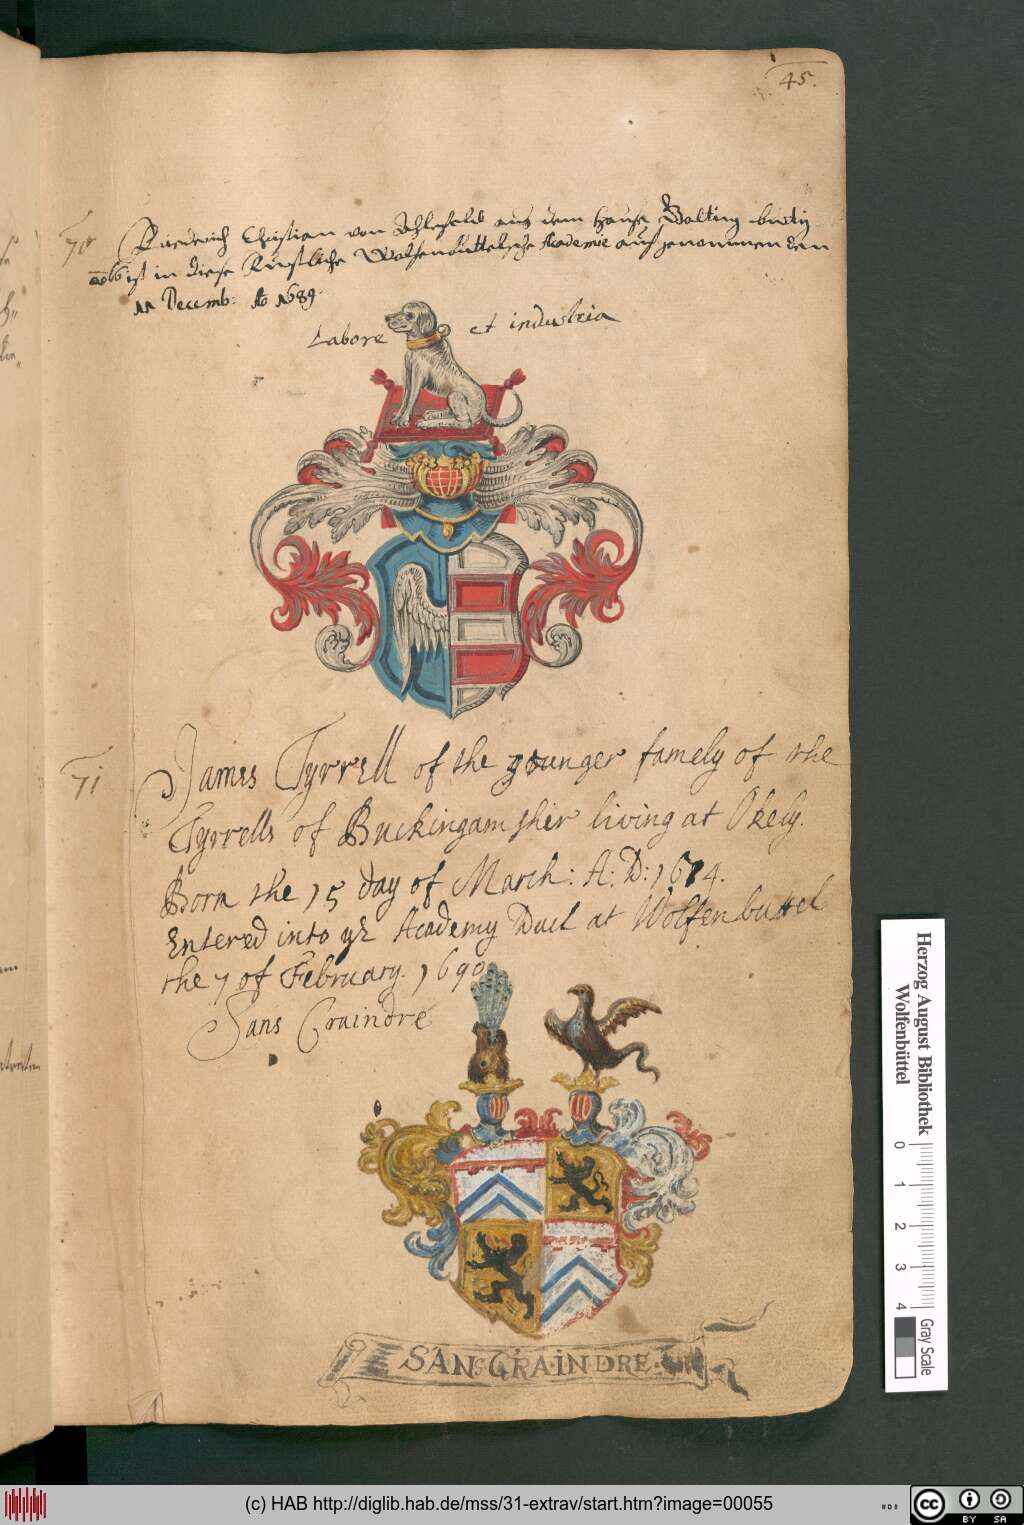 45.
70
Friederich Christian von Ahlefeldt aus dem Hause bürtig
ist in diese Fürstliche Wolfenbüttelsche Academie aufgenommen den
11 Decemb: Ao 1689.
Labore et industria
71
James Tyrrell of the younger famely of the
Tyrrells of Buckingamshir living at Okely.
Born the 15 day of March: A: D: 1674.
Entered into ye Academy Ducl at Wolfenbuttel
the 7 of February. 1690
Sans Craindre
SANS CRAINDRE.
Herzog August Bibliothek
Wolfenbüttel
0 1 2 3 4
Gray Scale
(c) HAB http://diglib.hab.de/mss/31-extrav/start.htm?image=00055
cc BY SA